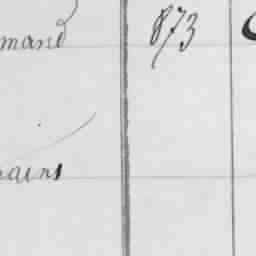 mand 873
ains